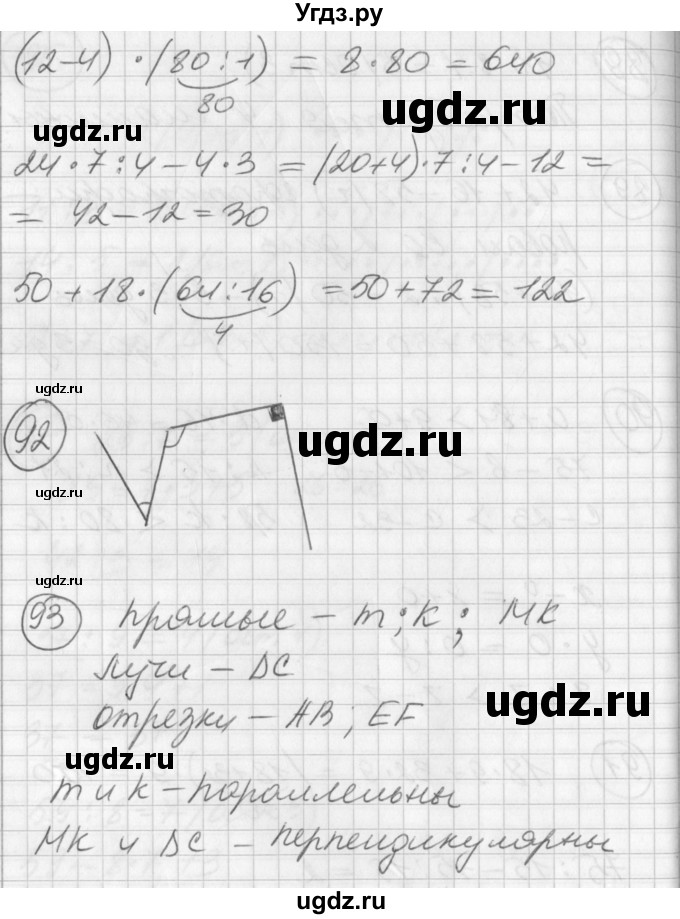 Угдз.ру
(12-4) · (80:1) = 8·80 = 640
80
ugdz.ru
ugdz.ru
24·7:4-4·3 = (20+4)·7:4-12 =
= 42-12=30
ugdz.ru
50+18·(64:16) =50+72= 122
4
ugdz.ru
ugdz.ru
92
ugdz.ru
ugdz.ru
ugdz.ru
93 прямые - m; к; МК
лучи - DC
ugdz.ru
отрезки - АВ; EF
ugdz.ru
m и к - параллельны
МК и DC - перпендикулярны
ugdz.ru
ugdz.ru